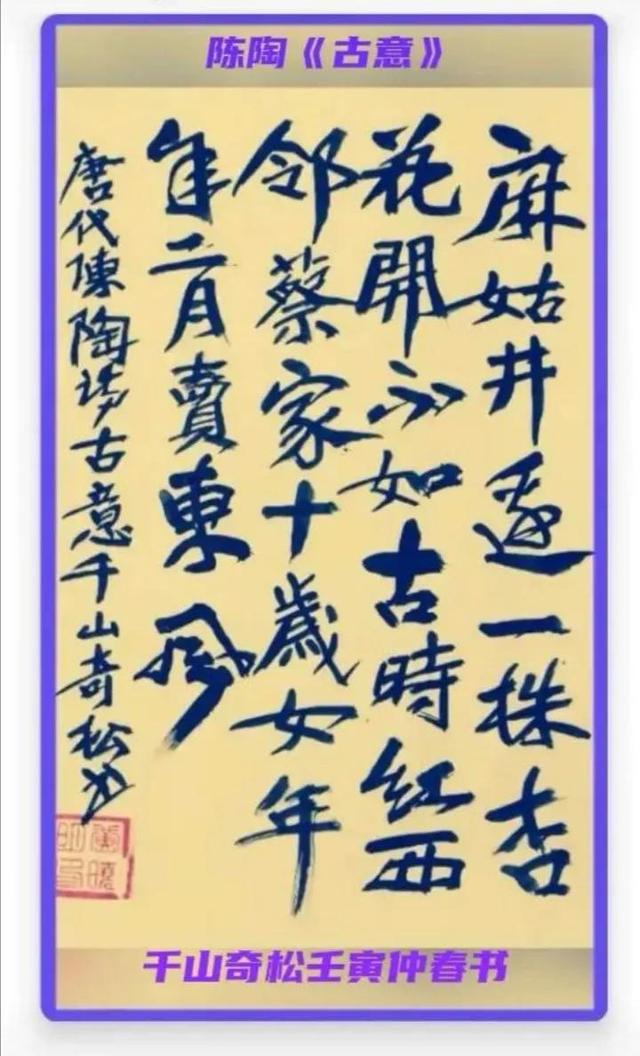 陈陶《古意》
麻姑井邊一株杏
花開不如古時紅西
邻蔡家十歲女年
年二月賣東風
唐代陳陶诗古意千山奇松书
千山奇松壬寅仲春书